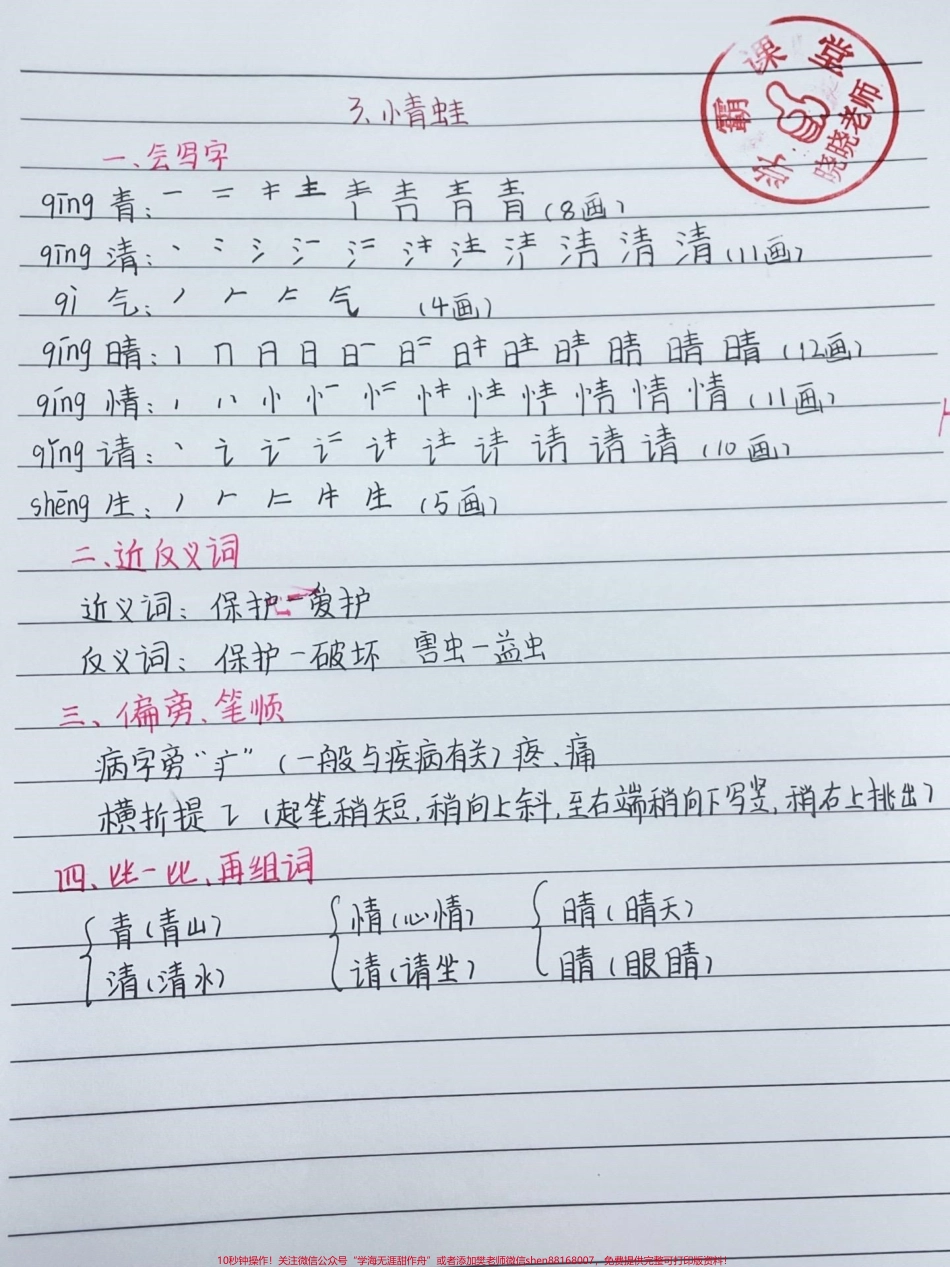 学霸课堂
晓晓老师
3、小青蛙
一、会写字
qīng 青：一 二 キ 龶 青 (8画)
qīng 清：丶 冫 氵 清 清 清 (11画)
qì 气：丿 𠂉 气 (4画)
qíng 晴：丨 冂 日 日 晴 晴 晴 (12画)
qíng 情：丶 丷 忄 情 情 情 (11画)
qǐng 请：丶 讠 请 请 请 (10画)
shēng 生：丿 𠂉 牛 生 (5画)
二、近反义词
近义词：保护一爱护
反义词：保护一破坏 害虫一益虫
三、偏旁、笔顺
病字旁“疒”(一般与疾病有关)疼、痛
横折提 ㇊ (起笔稍短,稍向上斜,至右端稍向下写竖,稍右上挑出)
四、比一比、再组词
青(青山) 情(心情) 晴(晴天)
清(清水) 请(请坐) 睛(眼睛)
10秒钟操作！关注微信公众号“学海无涯甜作舟”或者添加樊老师微信shen88168007，免费提供完整可打印版资料！